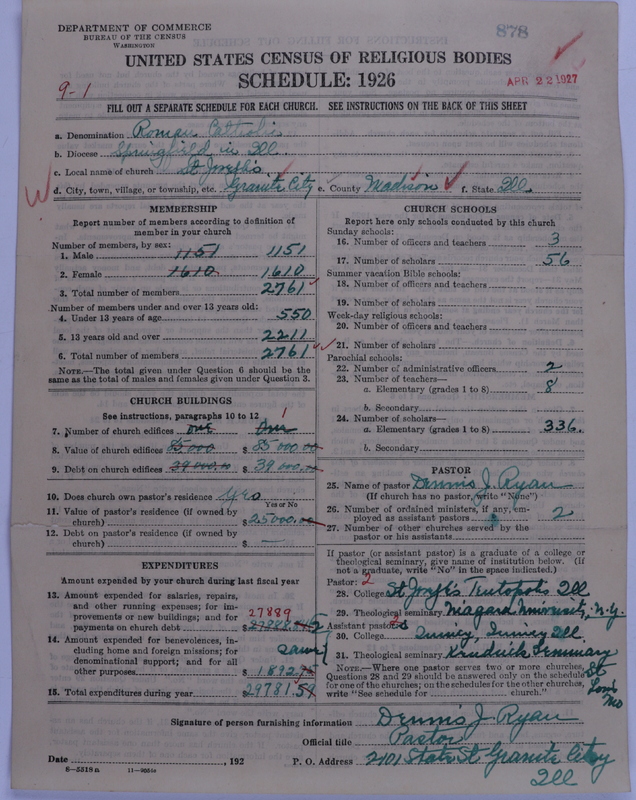 DEPARTMENT OF COMMERCE
BUREAU OF THE CENSUS
WASHINGTON
878
UNITED STATES CENSUS OF RELIGIOUS BODIES
SCHEDULE: 1926
APR 22 1927
9-1
FILL OUT A SEPARATE SCHEDULE FOR EACH CHURCH. SEE INSTRUCTIONS ON THE BACK OF THIS SHEET
a. Denomination Roman Catholic
b. Diocese Springfield in Ill.
c. Local name of church St Joseph's
d. City, town, village, or township, etc. Granite City e. County Madison f. State Ill
MEMBERSHIP
Report number of members according to definition of
member in your church
Number of members, by sex:
1. Male 1151 1151
2. Female 1610 1610
3. Total number of members 2761
Number of members under and over 13 years old:
4. Under 13 years of age 550
5. 13 years old and over 2211
6. Total number of members 2761
NOTE.—The total given under Question 6 should be
same as the total of males and females given under Question 3.
CHURCH BUILDINGS
See instructions, paragraphs 10 to 12
7. Number of church edifices one One 1
8. Value of church edifices 85000 $ 85000.00
9. Debt on church edifices 39000.00 $ 39000.00
10. Does church own pastor's residence Yes
Yes or No
11. Value of pastor's residence (if owned by
church) $ 25000.00
12. Debt on pastor's residence (if owned by
church) $ —
EXPENDITURES
Amount expended by your church during last fiscal year
13. Amount expended for salaries, repairs,
and other running expenses; for im-
provements or new buildings; and for 27889
payments on church debt $
14. Amount expended for benevolences, in-
cluding home and foreign missions; for
denominational support; and for all
other purposes $ 1892.75
15. Total expenditures during year $ 29781.59
CHURCH SCHOOLS
Report here only schools conducted by this church
Sunday schools:
16. Number of officers and teachers 3
17. Number of scholars 56
Summer vacation Bible schools:
18. Number of officers and teachers
19. Number of scholars
Week-day religious schools:
20. Number of officers and teachers
21. Number of scholars
Parochial schools:
22. Number of administrative officers 2
23. Number of teachers—
a. Elementary (grades 1 to 8) 8
b. Secondary
24. Number of scholars—
a. Elementary (grades 1 to 8) 336.
b. Secondary
PASTOR
25. Name of pastor Dennis J. Ryan
(If church has no pastor, write "None")
26. Number of ordained ministers, if any, em-
ployed as assistant pastors 2
27. Number of other churches served by the
pastor or his assistants
If pastor (or assistant pastor) is a graduate of a college or
theological seminary, give name of institution below. (If
not a graduate, write "No" in the space indicated.)
Pastor: 2
28. College St Joseph's Teutopolis Ill
29. Theological seminary Niagara University, N.Y.
Assistant pastor:
30. College Quincy, Quincy Ill.
31. Theological seminary Kendrick Seminary
St Louis Mo
NOTE.—Where one pastor serves two or more churches,
Questions 28 and 29 should be answered only on the schedule
for one of the churches; on the schedules for the other churches,
write "See schedule for church."
Signature of person furnishing information Dennis J. Ryan
Official title Pastor
Date , 192 P. O. Address 2101 State St Granite City
Ill
8—5518a 11—9051e